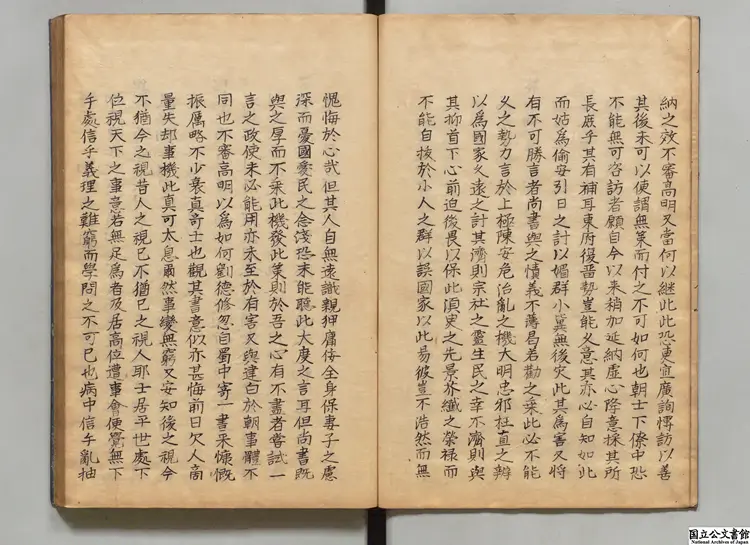 納之效不審高明又當何以繼此此恐更宜廣詢博訪以善
其後未可以便謂無策而付之不可如何也朝士下僚中恐
不能無可咨訪者願自今以來稍加延納虛心降意採其所
長庶乎其有補耳東府復留勢豈能久意其亦必自知如此
而姑為偷安引日之計以媚群小冀無後災此其為害又將
有不可勝言者尚書與之情義不薄曷若勸之采此必不能
久之勢力言於上極陳安危治亂之機大明忠邪枉直之辨
以為國家久遠之計其濟則宗社之靈生民之幸不濟則與
其抑首下心前迫後畏以保此湏臾之光景芥纖之榮祿而
不能自拔於小人之群以誤國家以此易彼豈不浩然而無
愧悔於心哉但其人自無遠識親狎庸佞全身保妻子之慮
深而憂國愛民之念淺恐未能聽此大度之言耳但尚書既
與之厚而不乘此機發此策則於吾之心有不盡者嘗試一
言之政使未必能用亦未至於有害又與建白於朝事體不
同也不審高明以為如何劉德修忽自蜀中寄一書來慷慨
振厲略不少衰真奇士也觀其書意似亦甚悔前日欠人商
量失却事機此真可太息爾然事變無窮又安知後之視今
不猶今之視昔人之視已不猶已之視人耶士居平世處下
位視天下之事意若無足為者及居高位遭事會便覺無下
手處信乎義理之難窮而學問之不可已也病中信手亂抽
国立公文書館
National Archives of Japan